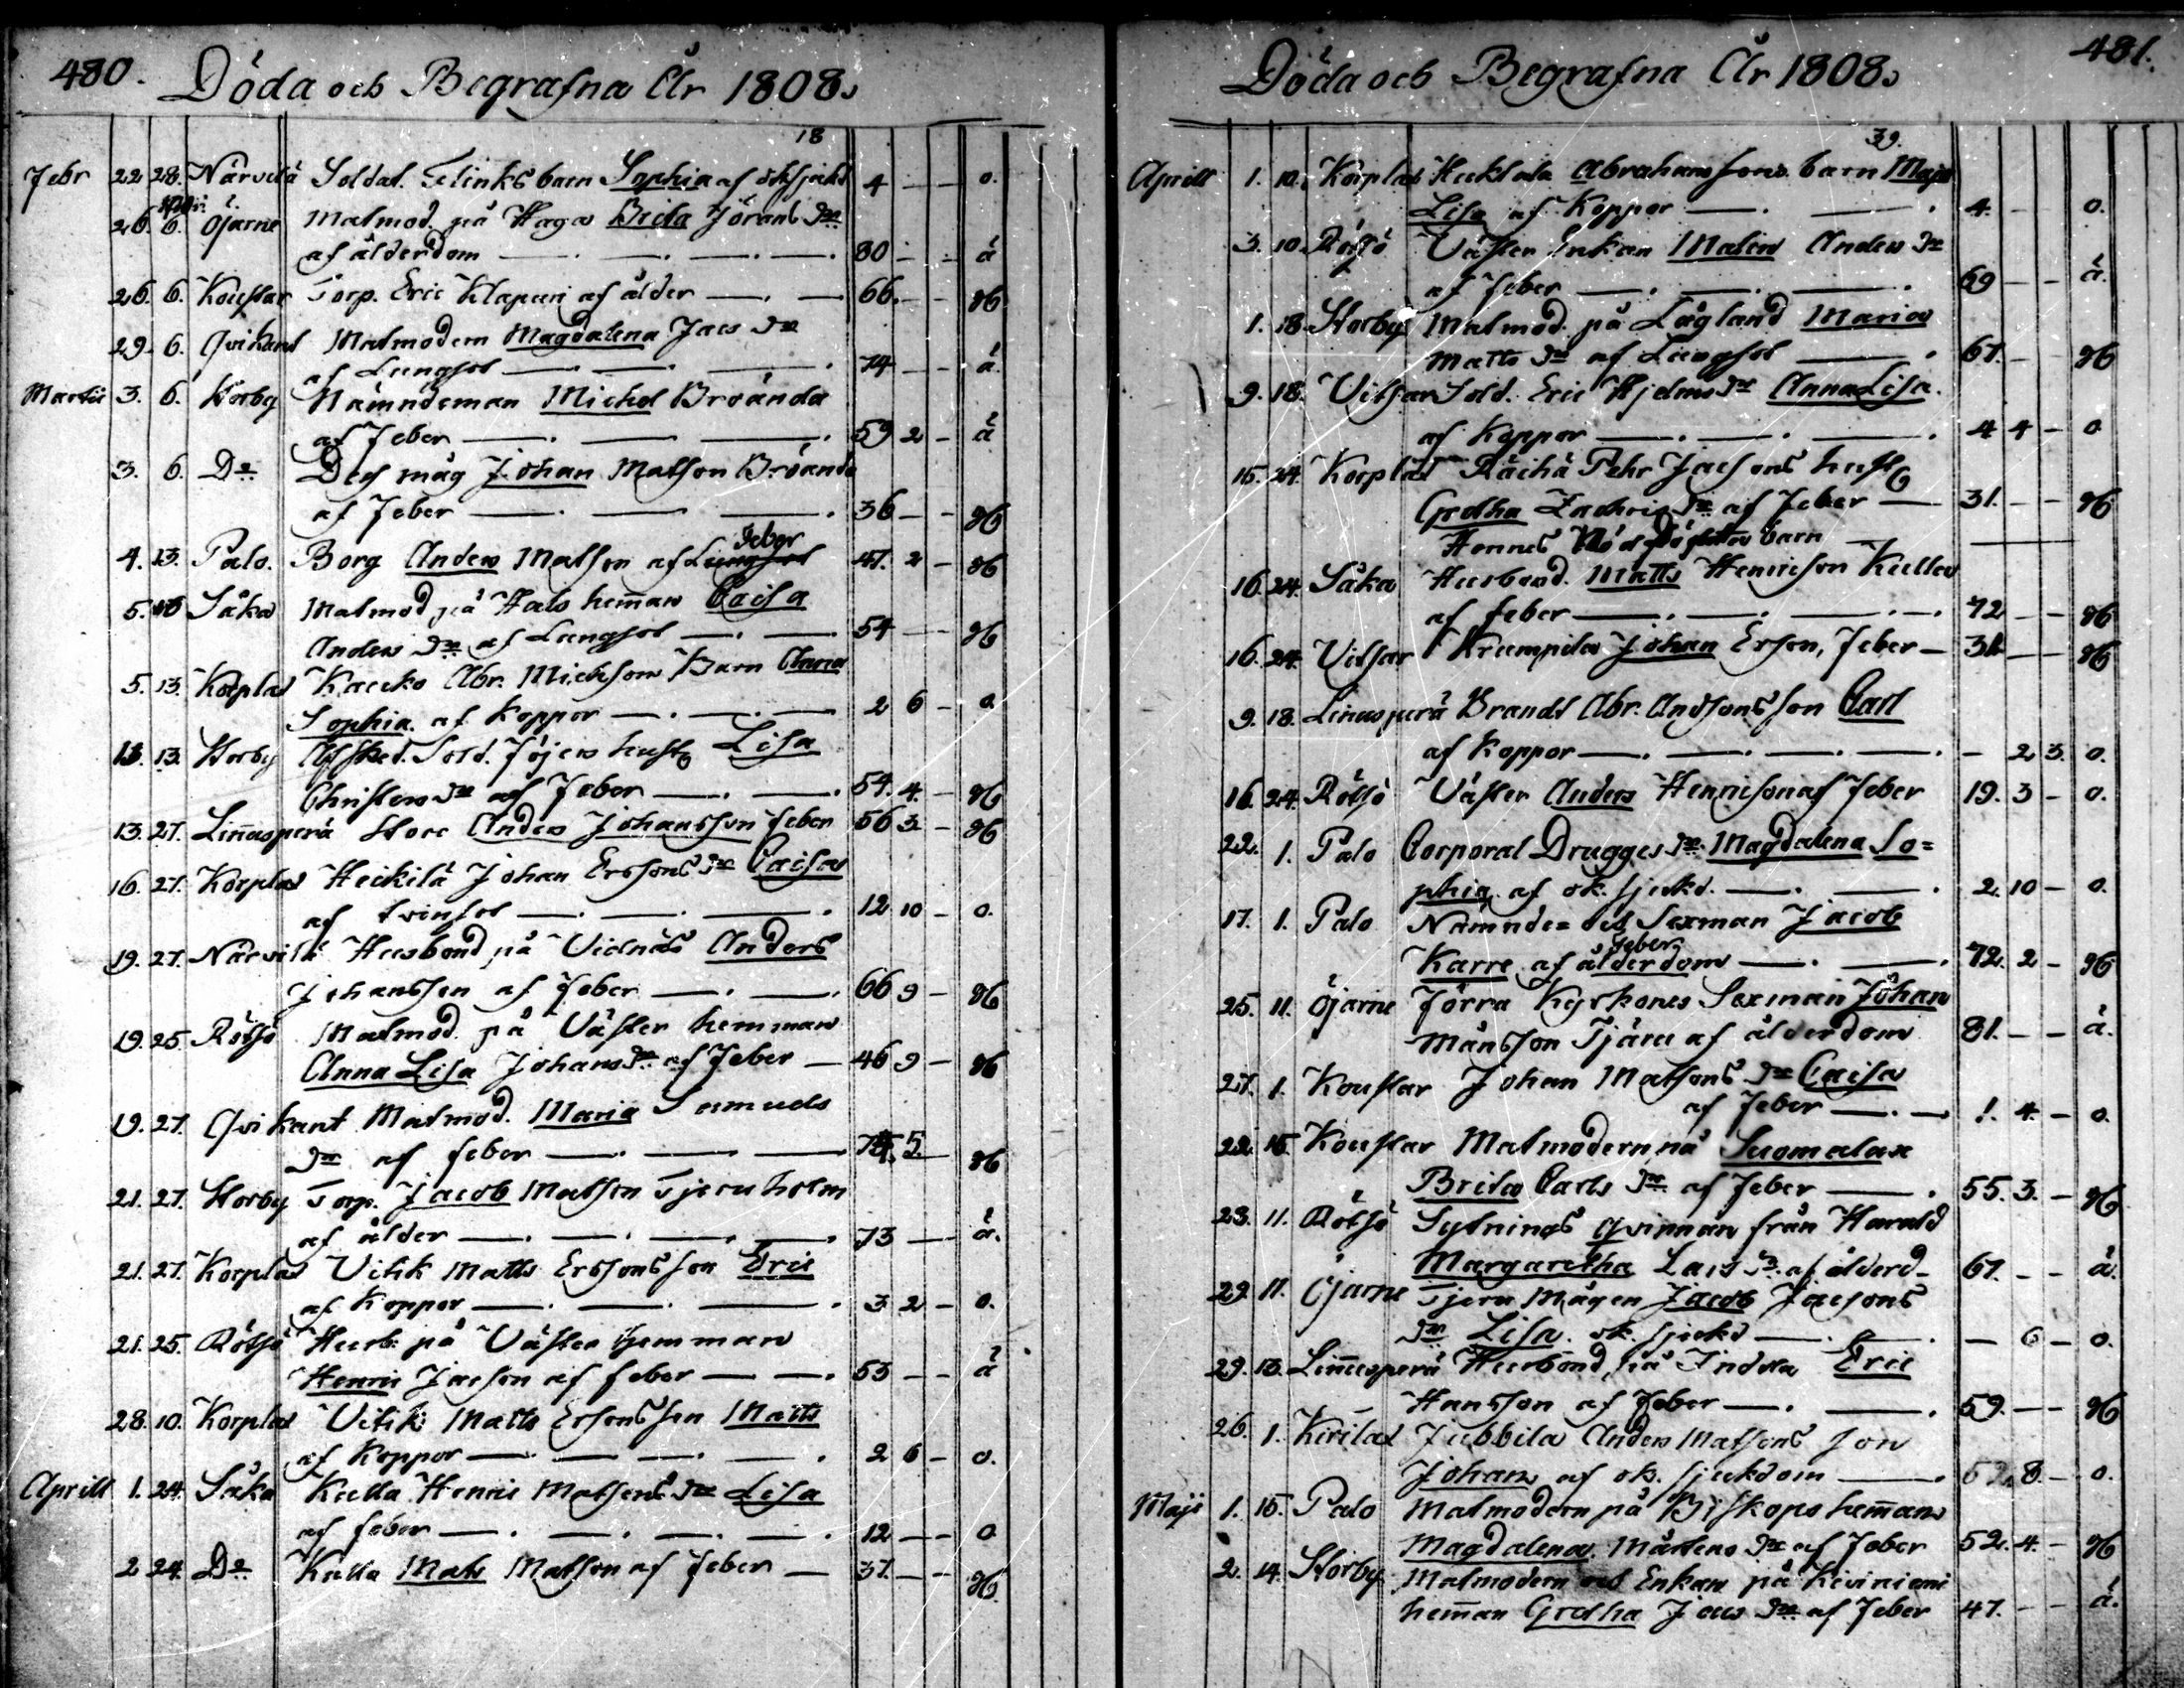 480. Döda och Begrafna År 1808.
18
Febr 22 28. Närvilä Soldat. Flinks barn Sophia af ok sjukd 4 — — o.
Marti.
26. 6. Öjarne Matmod. på Haga Brita Jörans Dr
af ålderdom — . — . — . — . 80 — — ä
26. 6. Koustar Torp. Eric Klapuri af ålder — . — 66. — — g
29. 6. Qvikant Matmodern Magdalena Jacs Dr
af Lungsot — . — . — . 74 — — ä
Martii 3. 6. Storby Nämndeman Michel Broända
af Feber — . — . — . 59 2 — ä
3. 6. Do Dess måg Johan Matson Broända
af Feber — . — . — . 36 — — g
feber
4. 13. Palo. Borg Anders Matson af Lungsot 47. 2 — g
5. Såka Matmod. på Hals hemman Caisa
Anders Dr af Lungsot — . — 54 — — g
5. 13. Korplax Kaucko Abr. Michsons Barn Anna
Sophia. af Koppor — . — . — 2 6 — o.
13. 13. Storby Afsked. Sold. Föjers hustr Lisa
Christers Dr af Feber — . — . 54. 4. — g
13. 27. Linnusperä Store Anders Johansson feber 56 3 — g
16. 27. Korplax Heickilä Johan Ersons Dr Caisa
af tvinsot — . — . — . 12 10 — o.
19. 27. Närvilä Husbond på Vidnäs Anders
Johansson af Feber — . — . 66 9 — g
19. 25. Rötsö Matmod. på Väster hemman
Anna Lisa Johans Dr af Feber — 46 9 — g
19. 27. Qvikant Matmod. Maria Samuels
Dr af feber — . — — 5. — g
21. 27. Storby Torp. Jacob Matson Tjeruholm
af ålder — . — . — . — . 73 — — ä.
21. 27. Korplax Vitik Matts Ersons son Eric
af Koppor — . — . — . 3 2 — o.
21. 25. Rötsö Husb. på Väster hemman
Henric Jacson af feber — — . 53 — — ä
28. 10. Korplax Vitik Matts Ersons son Matts
af Koppor — . — . — . — . 2 6 — o.
Aprill 1. 24. Såka Kulla Henric Matsons Dr Lisa
af feber — . — . — . — . 12 — — o
2 24. Do Kulla Mats Matson af Feber — 37. — — g
Döda och Begrafna År 1808. 481.
39.
Aprill 1. 10. Korplax Huktala Abrahamsons barn Maja
Lisa af Koppor — . — . 4. — — o.
3. 10. Rötsö Väster Enkan Malin Anders Dr
af feber — . — . — . 69 — — ä.
1. 18. Storby Matmod. på Lågland Maria
Matts Dr af Lungsot — . 67. — — g
9. 18. Vitsar Sold. Eric Hjelms Dr Anna Lisa.
af Koppor — . — . — . 4 4 — o
15. 24. Korplax Räihä Pehr Jacsons hustr
Gretha Zachris Dr af Feber — 31. — — g
Hennes Nöddöpta barn — —
16. 24. Såka Husbond. Matts Henricson Kulla
af feber — . — . — . — . 72 — — g
16. 24. Vitsar Krumpila Johan Erson, Feber — — — g
9. 18. Linnusperä Brandt Abr. Andsons son Carl
af Koppor — . — . — . — . — 2 3. o.
16. 24. Rötsö Väster Anders Henricson af Feber 19. 3 — o.
22. 1. Palo Corporal Drugges Dr Magdalena So=
phia af ok. sjukd. — . — . 2. 10 — o.
17. 1. Palo Nämnde= och Sexman Jacob
feber
Karre af ålderdom — . — . 72. 2 — g
25. 11. Öjarne Förra Kyrkones Sexman Johan
Månsson Tjäru af ålderdom 81. — — ä.
27. 1. Koustar Johan Matsons Dr Caisa
af Feber — . — 1. 4. — o.
22. 15. Koustar Matmodern på Suomalax
Brita Carls Dr af Feber — . 55. 3. — g
23. 11. Rötsö Sytnings qvinnan från Harald
Margaretha Lars Dr af ålderd — 67. — — ä.
29. 11. Öjarne Tjeru Mågen Jacob Jacsons
Dr Lisa. ok. sjukd — . — . — 6 — o.
29. 15. Linnusperä Husbond, på Indola Eric
Hansson af Feber — . — . 59. — — g
26. 1. Kirilax Jubbila Anders Matsons son
Johan af ok. sjukdom — . 8 — o.
Maji 1. 15. Palo Matmodern på Biskops hemman
Magdalena. Mårtens Dr af Feber 52. 4. — g
2. 14. Storby Matmodern och Enkan på Kiviniemi
hemman Gretha Jacs Dr af Feber 47. — — ä.